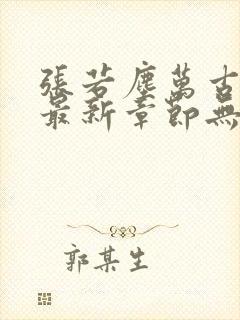 張若塵萬古
最新章節無
郭某生